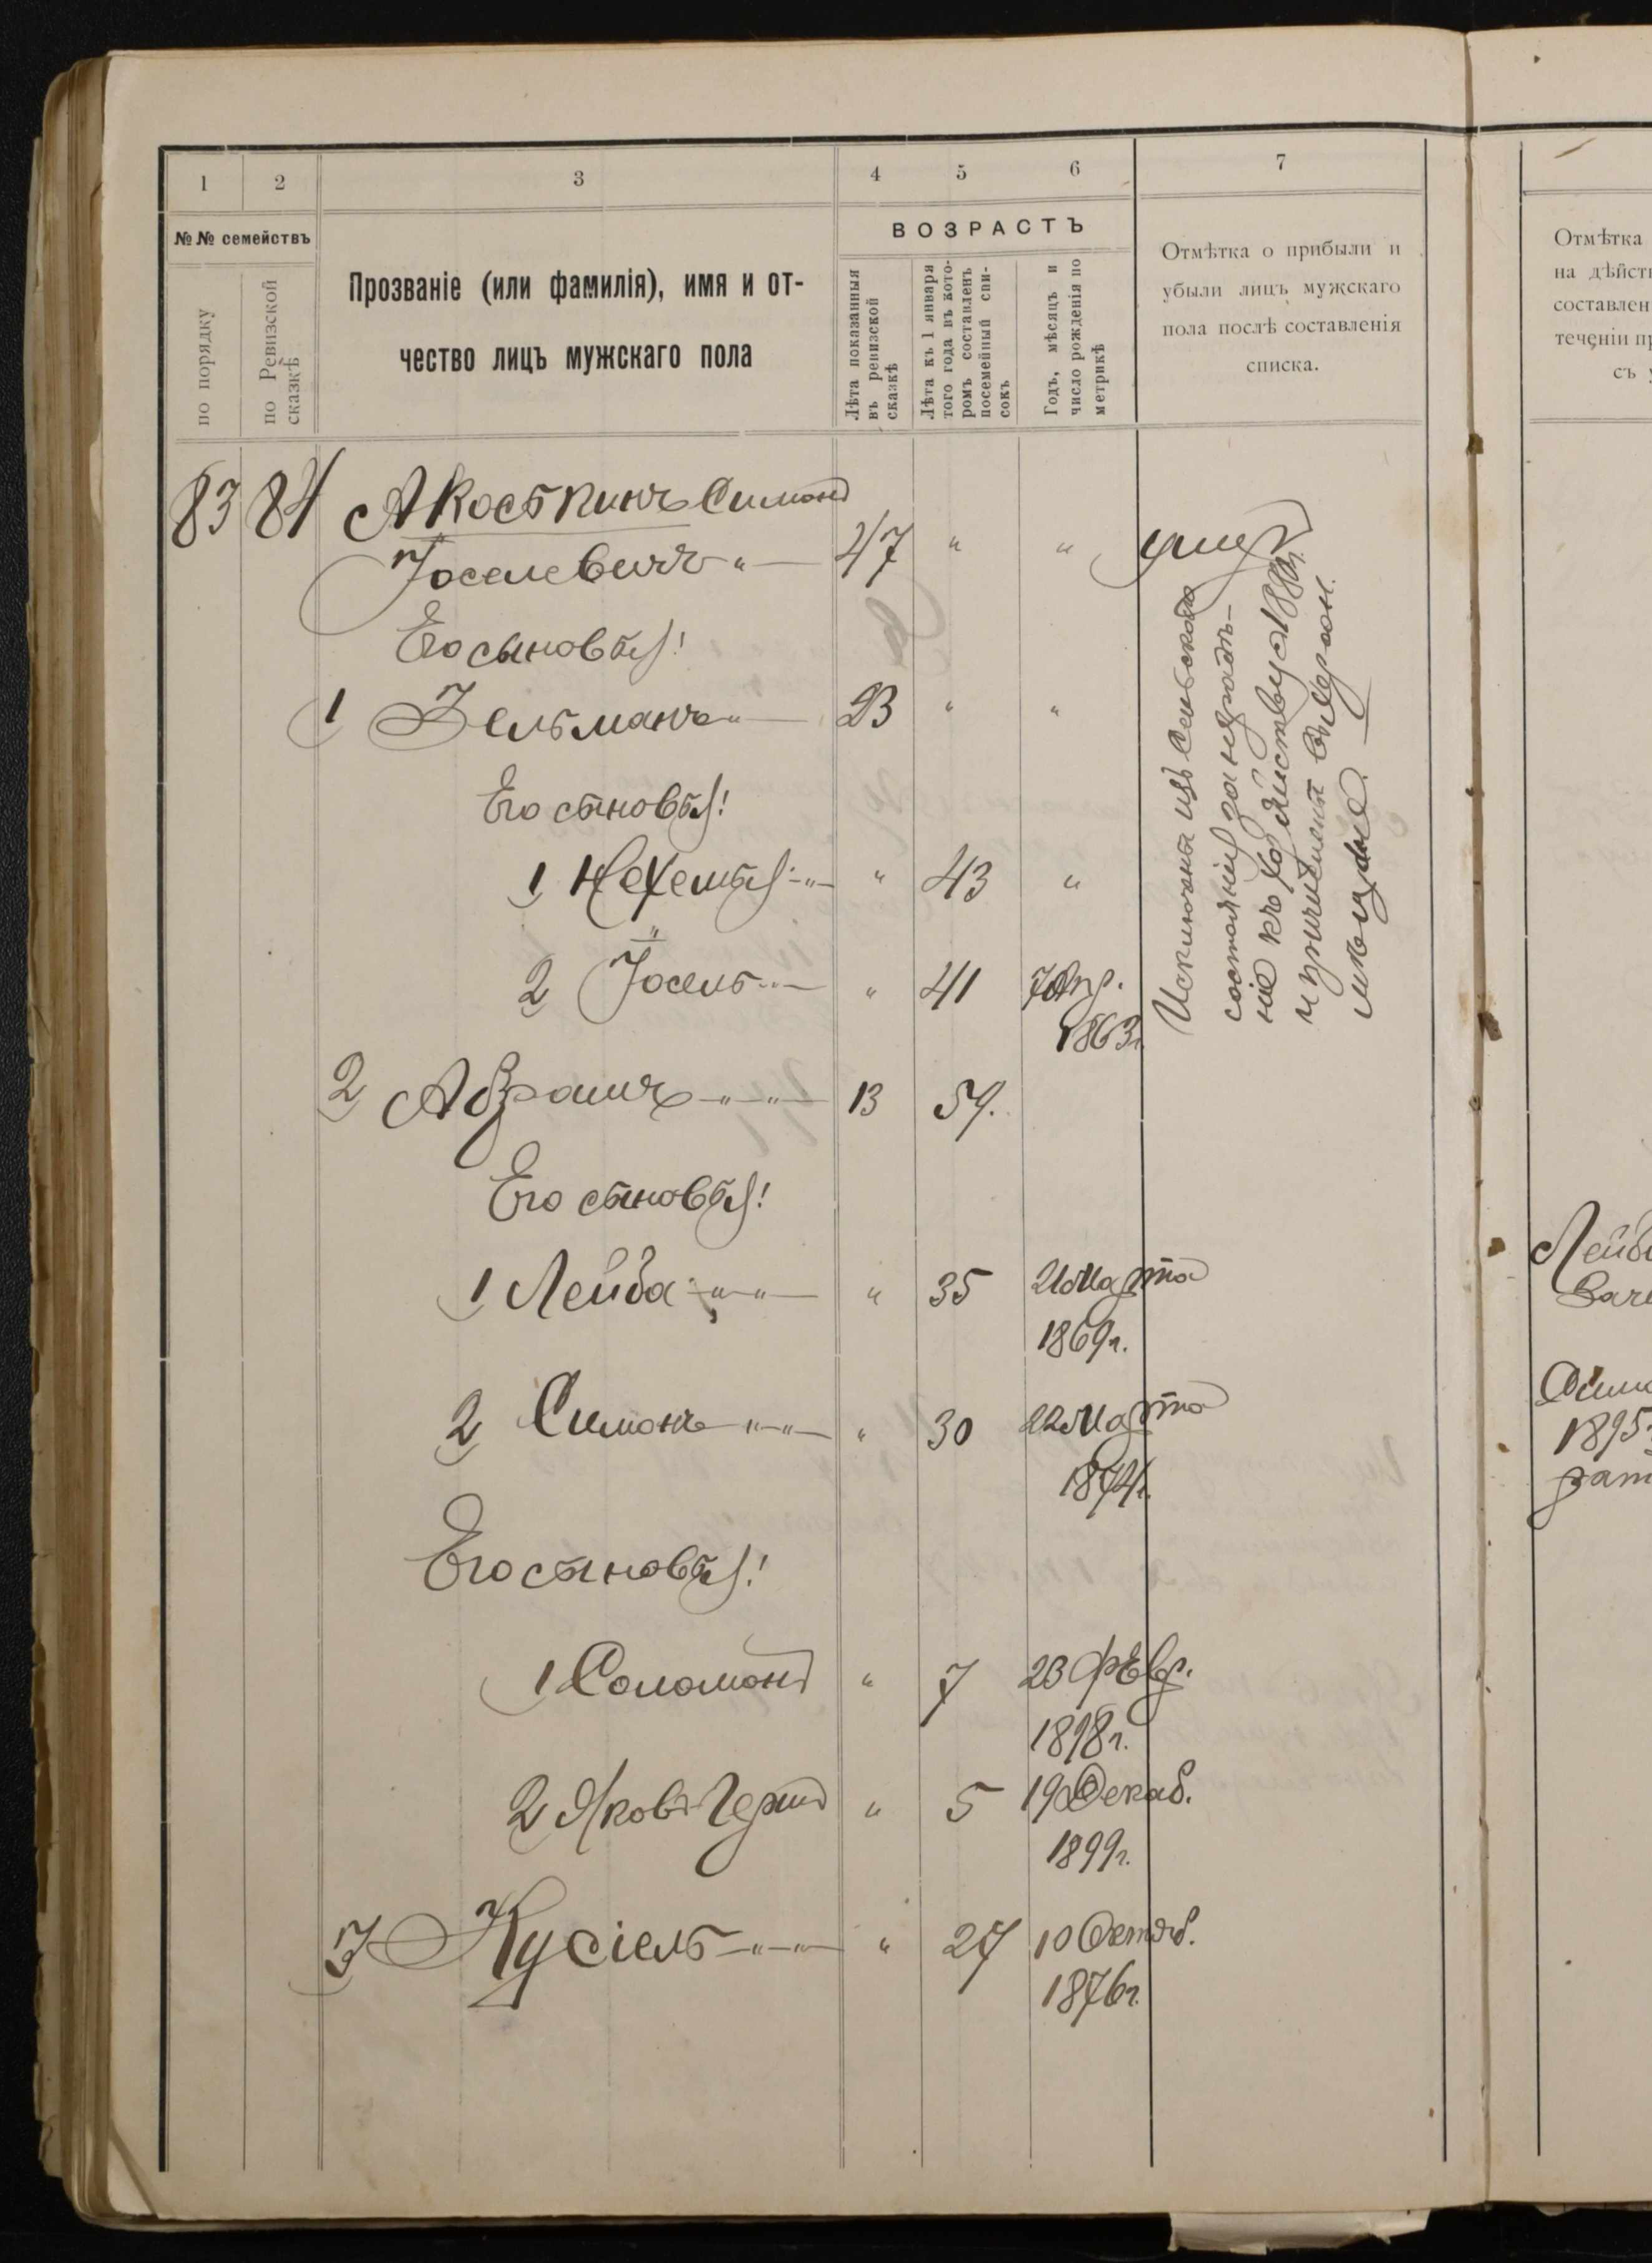 1 2 3 4 5 6 7
№№ семействъ
по порядку
по Ревизской
сказкѣ
Прозваніе (или фамилія), имя и от-
чество лицъ мужскаго пола
ВОЗРАСТЪ
Лѣта показанныя
въ ревизской
сказкѣ
Лѣта къ 1 января
того года въ кото-
ромъ составленъ
посемейный спи-
сокъ
Годъ, мѣсяцъ и
число рожденія по
метрикѣ
Отмѣтка о прибыли и
убыли лицъ мужскаго
пола послѣ составленія
списка.
Отмѣтка
на дѣйст
составлен
теченіи п
съ
83 84 Акосткинъ Симонъ
Іоселевичъ " 47 " " умеръ
Его сыновья!
1 Зельманъ " 23 " "
Его сыновья!
1 Нехемья " " 43 "
2 Іосель " " 41 7 Апр.
1863 г.
Исключены изъ сельскаго
состоянія за нерадѣ-
ніе къ хозяйству съ 1880 г.
и причислены въ Херсон.
мѣщане.
2 Абрамъ " " 13 59.
Его сыновья!
1 Лейба " " " 35 21 Марта
1869 г.
2 Симонъ " " " 30 22 Марта
1874 г.
Его сыновья!
1 Соломонъ " 7 23 Февр.
1898 г.
2 Яковъ-Гершъ " 5 19 Декаб.
1899 г.
3 Кусіель " " " 27 10 Октяб.
1876 г.
Лейб
Зач
Симо
1895
рат